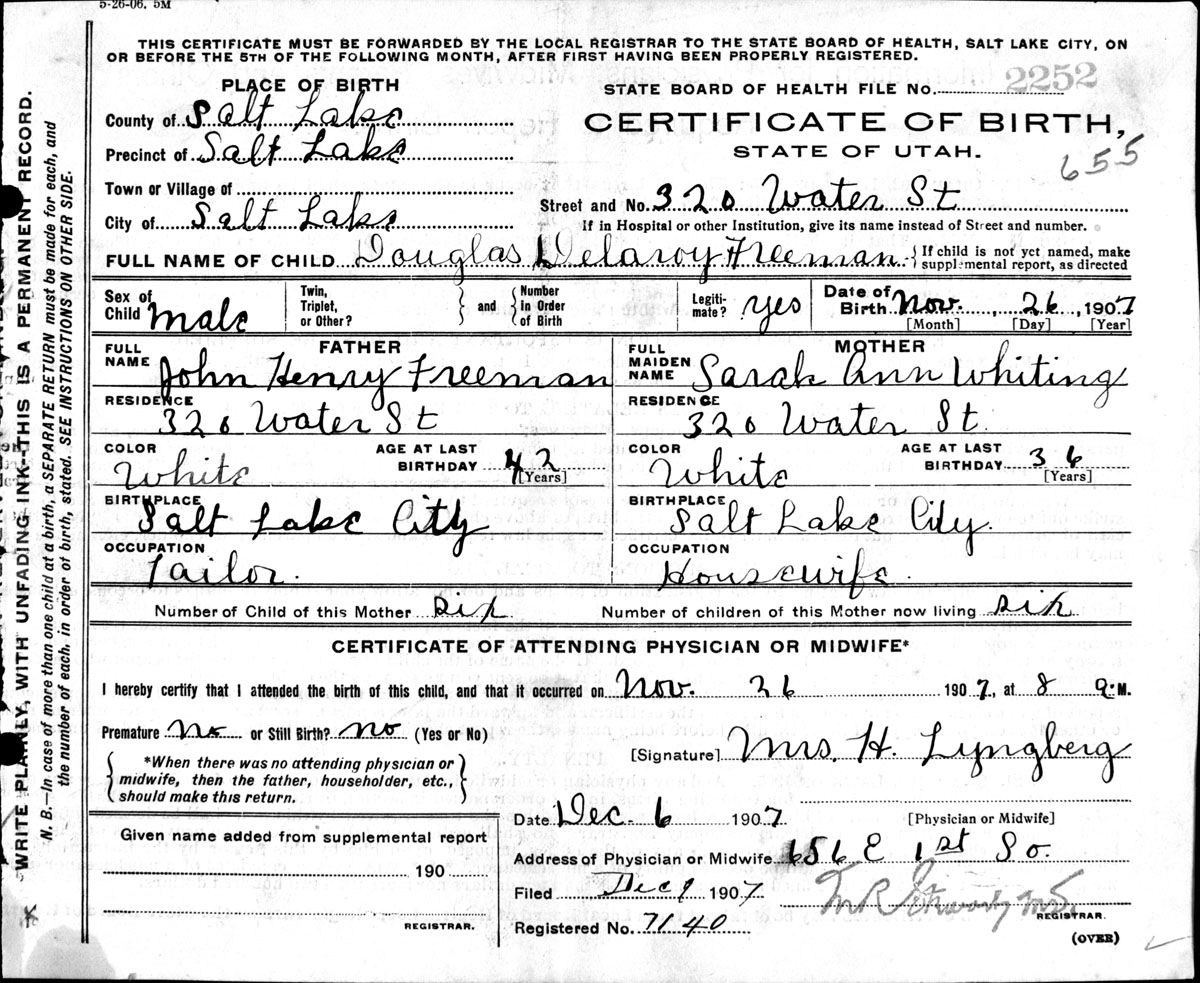 5-26-06. 5M
THIS CERTIFICATE MUST BE FORWARDED BY THE LOCAL REGISTRAR TO THE STATE BOARD OF HEALTH, SALT LAKE CITY, ON
OR BEFORE THE 5TH OF THE FOLLOWING MONTH, AFTER FIRST HAVING BEEN PROPERLY REGISTERED.
PLACE OF BIRTH
STATE BOARD OF HEALTH FILE No. 2252
County of Salt Lake
CERTIFICATE OF BIRTH,
Precinct of Salt Lake
STATE OF UTAH.
655
Town or Village of
Street and No. 320 Water St
City of Salt Lake
If in Hospital or other Institution, give its name instead of Street and number.
FULL NAME OF CHILD Douglas Delaroy Freeman
{If child is not yet named, make
supplemental report, as directed
Sex of Child Male
Twin, Triplet, or Other?
and
Number in Order of Birth
Legiti-mate? yes
Date of Birth Nov. 26, 1907
[Month] [Day] [Year]
FATHER
FULL NAME John Henry Freeman
RESIDENCE
320 Water St
COLOR White
AGE AT LAST BIRTHDAY 42 [Years]
BIRTHPLACE
Salt Lake City
OCCUPATION
Tailor.
MOTHER
FULL MAIDEN NAME Sarah Ann Whiting
RESIDENCE
320 Water St.
COLOR White
AGE AT LAST BIRTHDAY 36 [Years]
BIRTHPLACE
Salt Lake City.
OCCUPATION
Housewife.
Number of Child of this Mother six
Number of children of this Mother now living six
CERTIFICATE OF ATTENDING PHYSICIAN OR MIDWIFE*
I hereby certify that I attended the birth of this child, and that it occurred on Nov. 26 1907, at 8 M.
Premature No or Still Birth? no (Yes or No)
[Signature] Mrs. H. Lyngberg
*When there was no attending physician or
midwife, then the father, householder, etc.,
should make this return.
Date Dec. 6 1907
[Physician or Midwife]
Given name added from supplemental report
Address of Physician or Midwife 656 E 1st So.
190
Filed Dec 9 1907
REGISTRAR.
Registered No. 7140
REGISTRAR.
(OVER)
WRITE PLAINLY, WITH UNFADING INK—THIS IS A PERMANENT RECORD.
N. B.—In case of more than one child at a birth, a SEPARATE RETURN must be made for each, and
the number of each, in order of birth, stated. SEE INSTRUCTIONS ON OTHER SIDE.